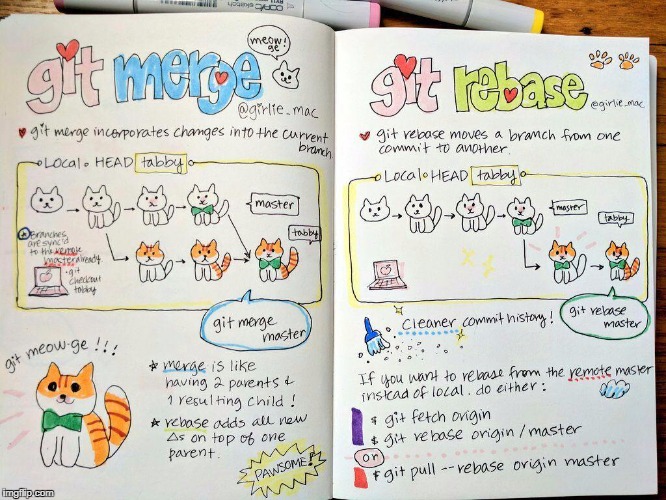 git merge
meow!
ge
@girlie_mac
git merge incorporates changes into the current
branch
Local HEAD tabby
master
tabby
Branches
are sync'd
to the remote
master already
git
checkout
tabby
git merge
master
git meow-ge !!!
merge is like
having 2 parents &
1 resulting child!
rebase adds all new
Δs on top of one
parent.
PAWSOME!
git rebase
@girlie_mac
git rebase moves a branch from one
commit to another.
Local HEAD tabby
master
tabby
git rebase
master
Cleaner commit history!
If you want to rebase from the remote master
instead of local, do either:
$ git fetch origin
$ git rebase origin/master
or
$ git pull --rebase origin master
imgflip.com